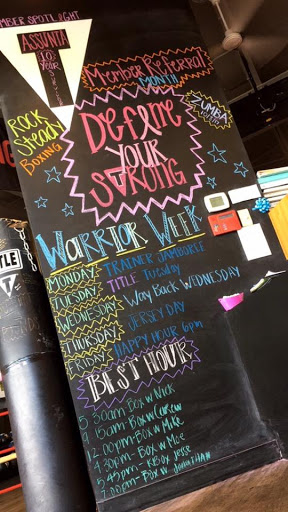 MEMBER SPOTLIGHT
ASSUNTA
10
YEAR
Member Referral
MONTH
Rock
Steady
BOXING
ZUMBA
Define
YOUR
STRONG
WARRIOR WEEK
MONDAY: TRAINER JAMBOREE
TUESDAY: TITLE Tuesday
WEDNESDAY: Way Back WEDNESDAY
THURSDAY: JERSEY DAY
FRIDAY: HAPPY HOUR 6pm
BEST HOUR
5:30am Box w Nick
9:15am Box w
12:00pm- Box w Mike
4:30pm- Box w Moe
5:45pm- KBox Jesse
7:00pm- Box w Jonathan
TLE
T